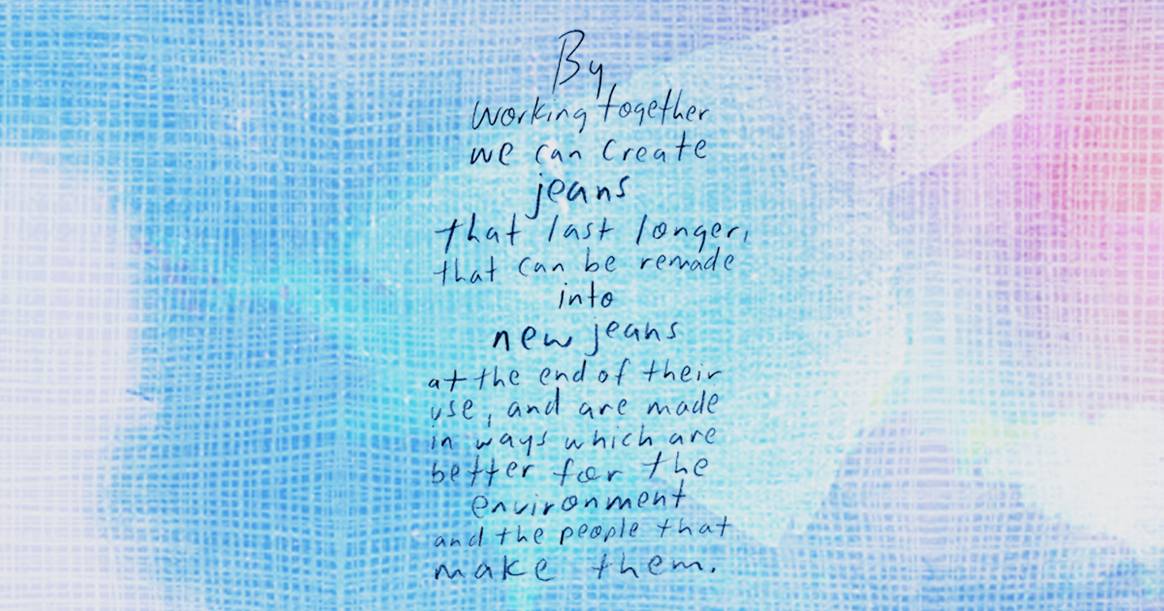 By
working together
we can create
jeans
that last longer,
that can be remade
into
new jeans
at the end of their
use, and are made
in ways which are
better for the
environment
and the people that
make them.